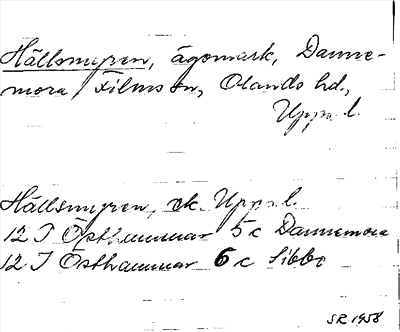 Hällsmyren, ägomark, Danne-
mora Films sn, Olands hd.,
Upps. l.
Hällsmyren, ek. Upps. l.
12 I Östhammar 5 c Dannemora
12 I Östhammar 6 c Sibbo
SR 1958